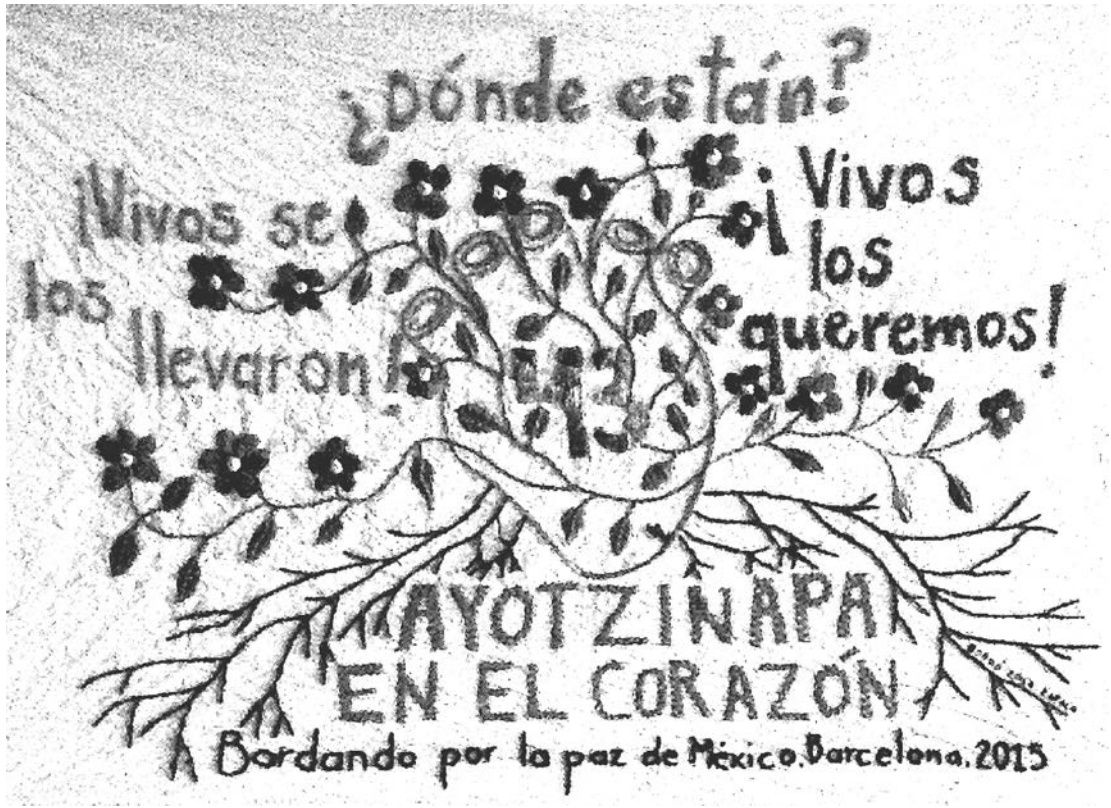 ¿Dónde están?
¡Vivos se
los
llevaron!
¡Vivos
los
queremos!
AYOTZINAPA
EN EL CORAZÓN
Bordando por la paz de México. Barcelona. 2015